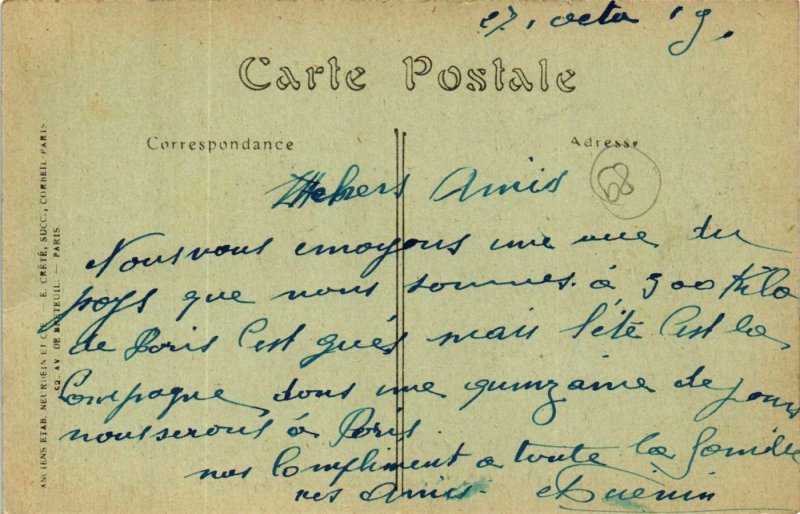 27, octo 19,
Carte Postale
Correspondance
Adresse
68
Chers Amis
Nous vous envoyons une vue du
pays que nous sommes à 300 Kilo
de Paris C'est gués mais l'été C'est la
Compagne dons une quinzaine de jours
nous serons à Paris
nos Compliment a toute la famille
nes Amis Guenin
ANCIENS ETAB. NEURDEIN ET C — E. CRÉTÉ, SUCC., CORBEIL-PARIS
52, AV. DE BRETEUIL. — PARIS.